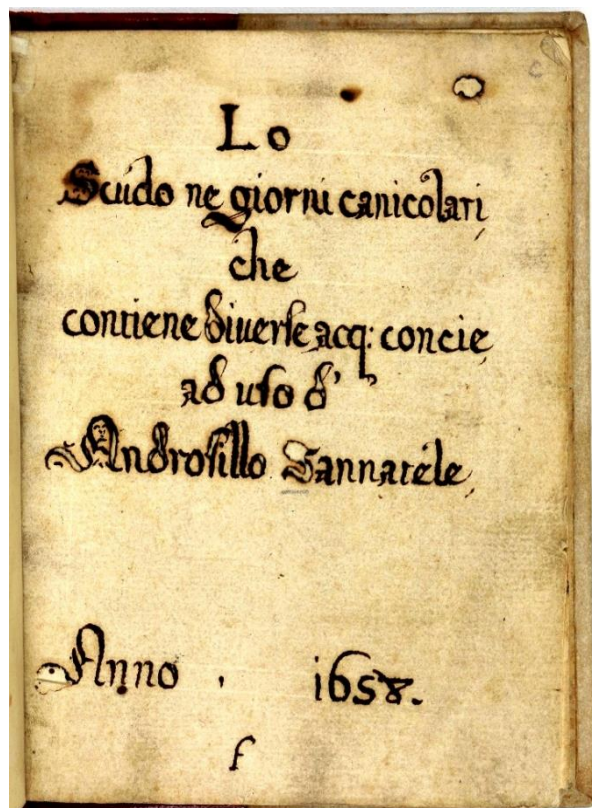 Lo
Scudo ne giorni canicolari
che
contiene diverse acq: concie
ad uso d'
Androsillo
Anno 1658.
f